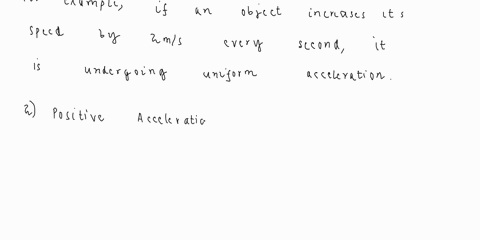 for example, if an object increases its
speed by 2m/s every second, it
is undergoing uniform acceleration.
2) Positive Acceleratio